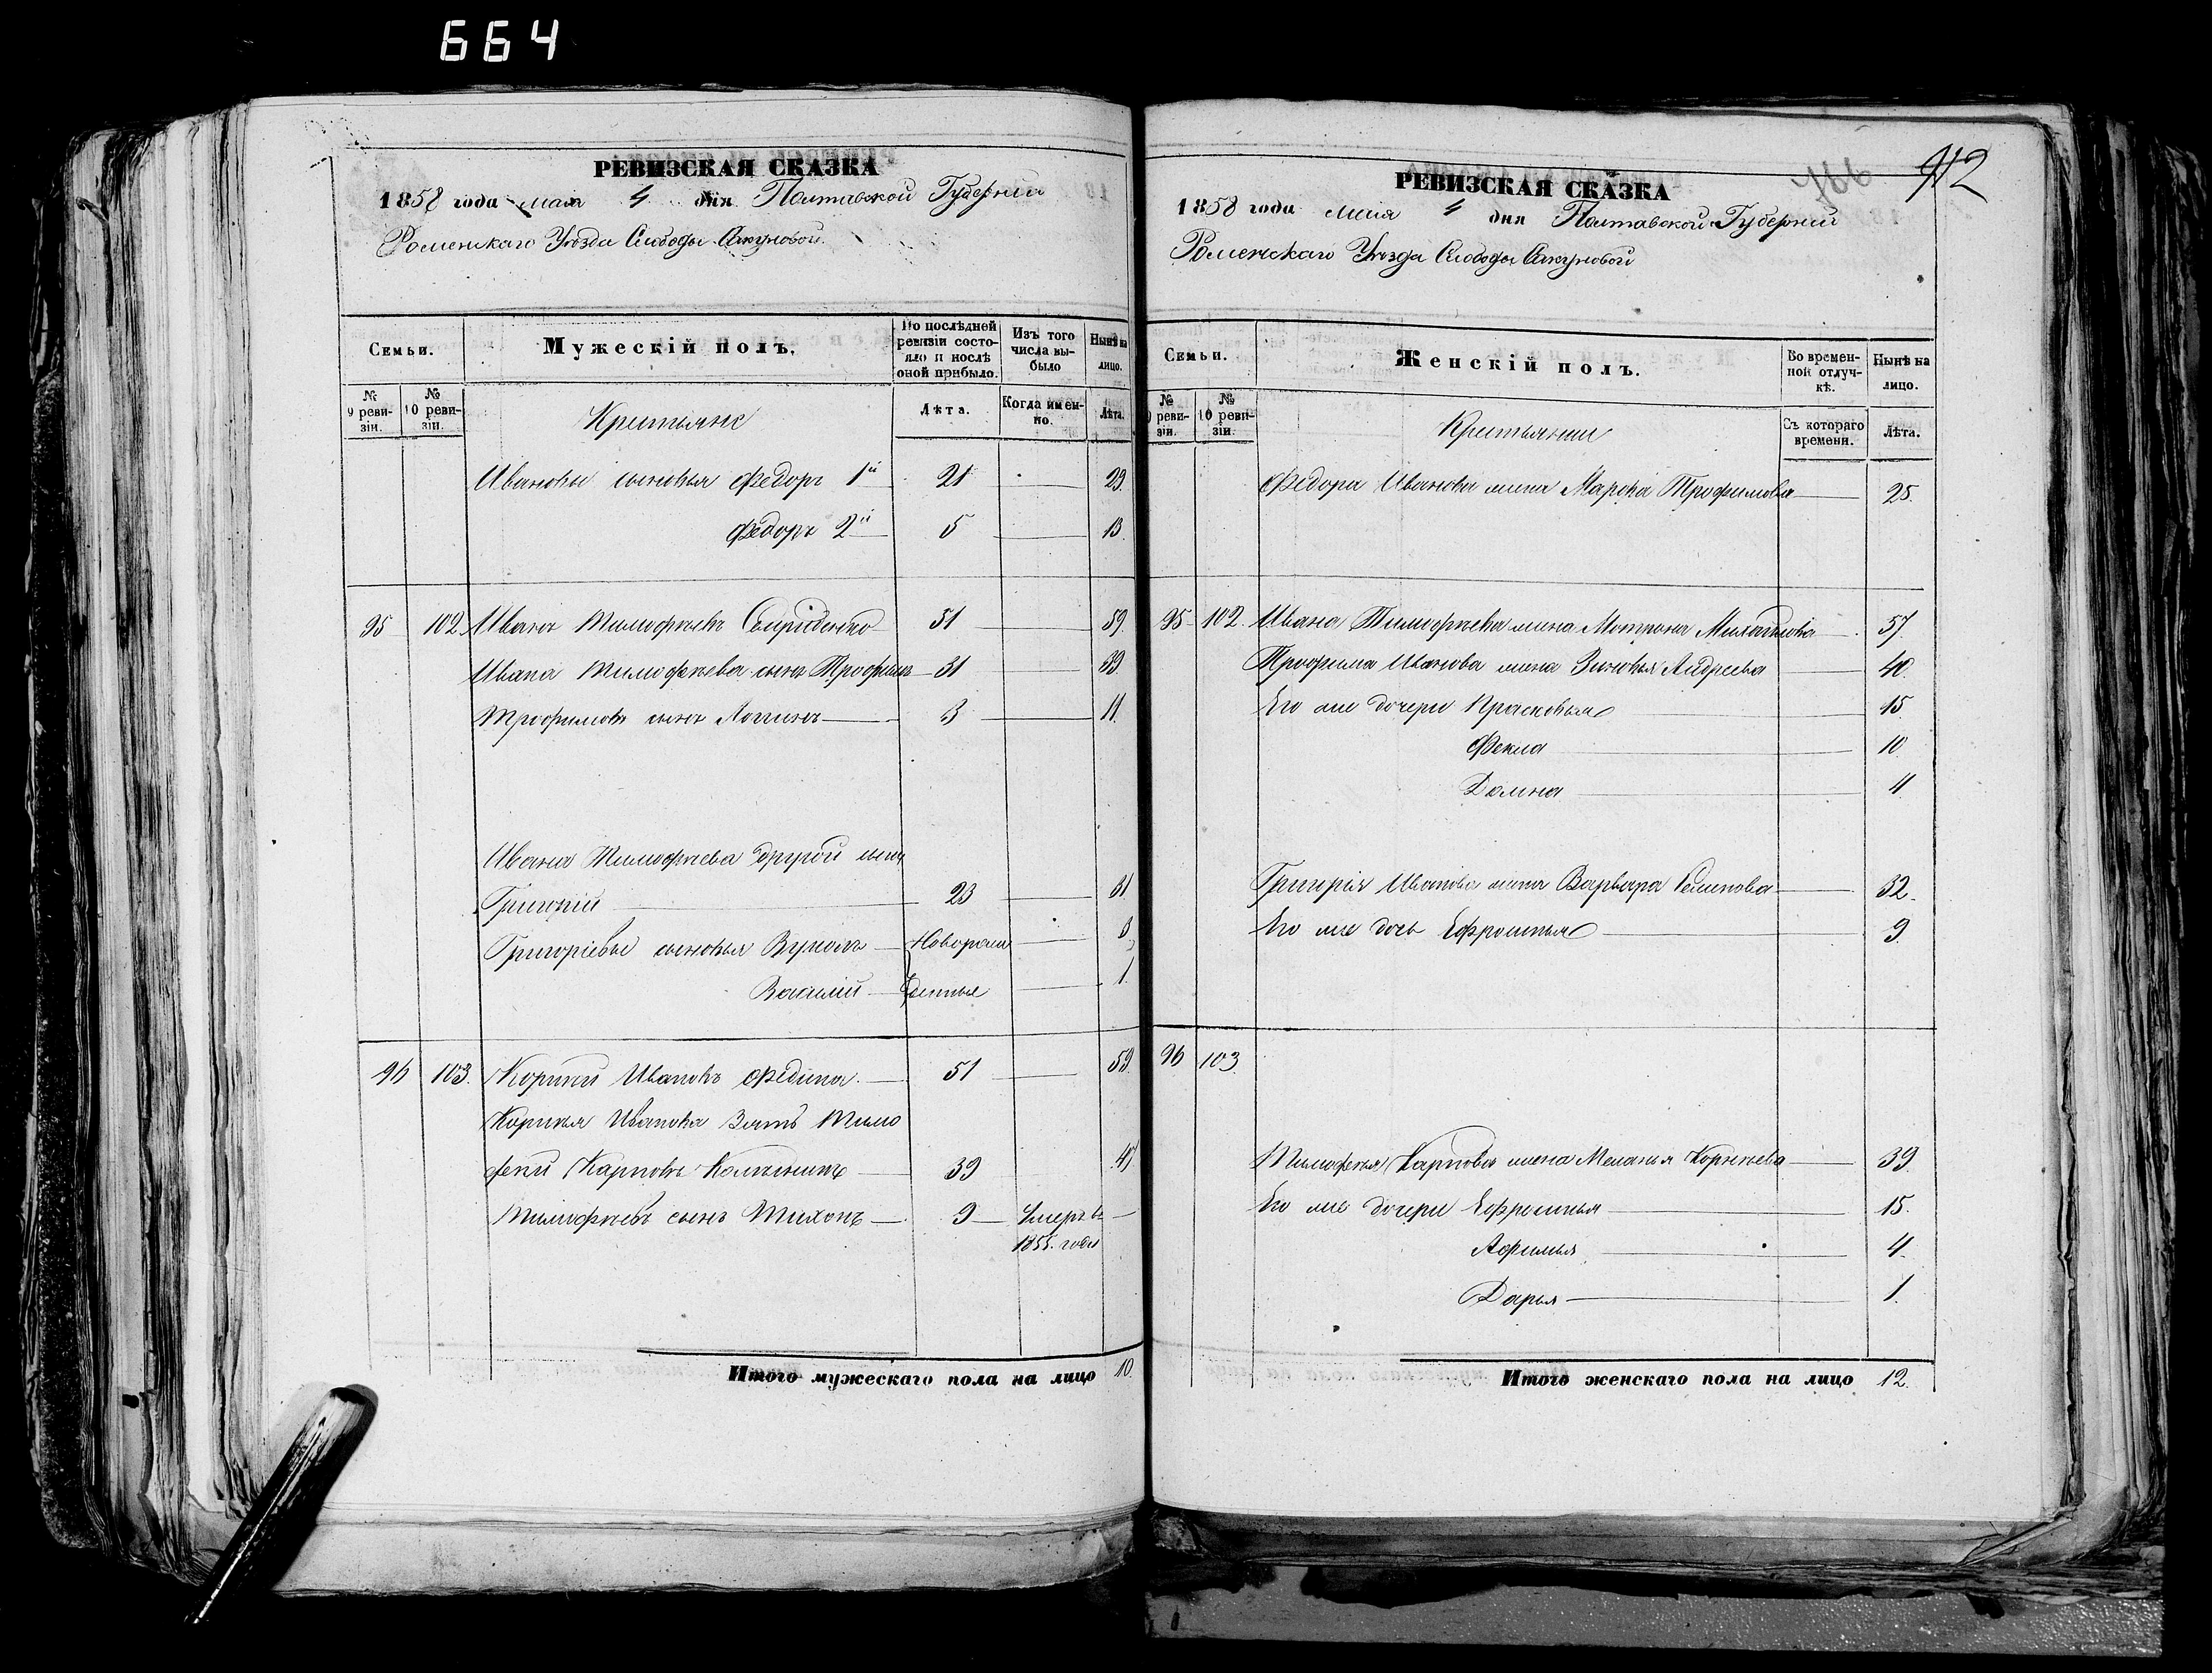 664
РЕВИЗСКАЯ СКАЗКА
1858 года мая 4 дня Полтавской Губерніи
Роменскаго Уѣзда Слободы
Семьи.
Мужескій полъ.
По послѣдней ревизіи состояло и послѣ оной прибыло.
Изъ того числа выбыло
Нынѣ на лицо.
№ 9 ревизіи.
№ 10 ревизіи.
Крестьяне
Лѣта.
Когда именно.
Лѣта.
Ивановы сыновья Федоръ 1й 21 29.
Федоръ 2й 5 13.
95 102. Иванъ Тимофѣевъ 51 59.
Ивана Тимофѣева сынъ Трофимъ 31 39.
Трофимовъ сынъ Логинъ 3 11.
Ивана Тимофѣева другой сынъ
Григорій 23 31
Григорьевы сыновья Вуколъ Новорож 3
Василій денные 1.
96 103. Корнѣй Ивановъ Федина 51 59.
Корнѣя Иванова Зять Тимо
фей Карповъ 39 47
Тимофѣевъ сынъ Тихонъ 9 Умеръ въ
1855. году
Итого мужескаго пола на лицо 10.
766
912
РЕВИЗСКАЯ СКАЗКА
1858 года мая 4 дня Полтавской Губерніи
Роменскаго Уѣзда Слободы
Семьи.
Женскій полъ.
Во временной отлучкѣ.
Нынѣ на лицо.
№ 9 ревизіи.
№ 10 ревизіи.
Крестьянки
Съ котораго времени.
Лѣта.
Федора Иванова жена Марфа Трофимова 25.
95 102. Ивана Тимофѣева жена Мотрона Михайлова 57.
Трофима Иванова жена Зиновья Андреева 40.
Его же дочери Прасковья 15.
Фекла 10.
Домна 4
Григорія Иванова жена Варвара Семенова 32.
Его же дочь Ефросинья 9.
96 103
Тимофея Карпова жена Меланья Корнѣева 39.
Его же дочери Ефросинья 15.
Афимья 4.
Дарья 1.
Итого женскаго пола на лицо 12.